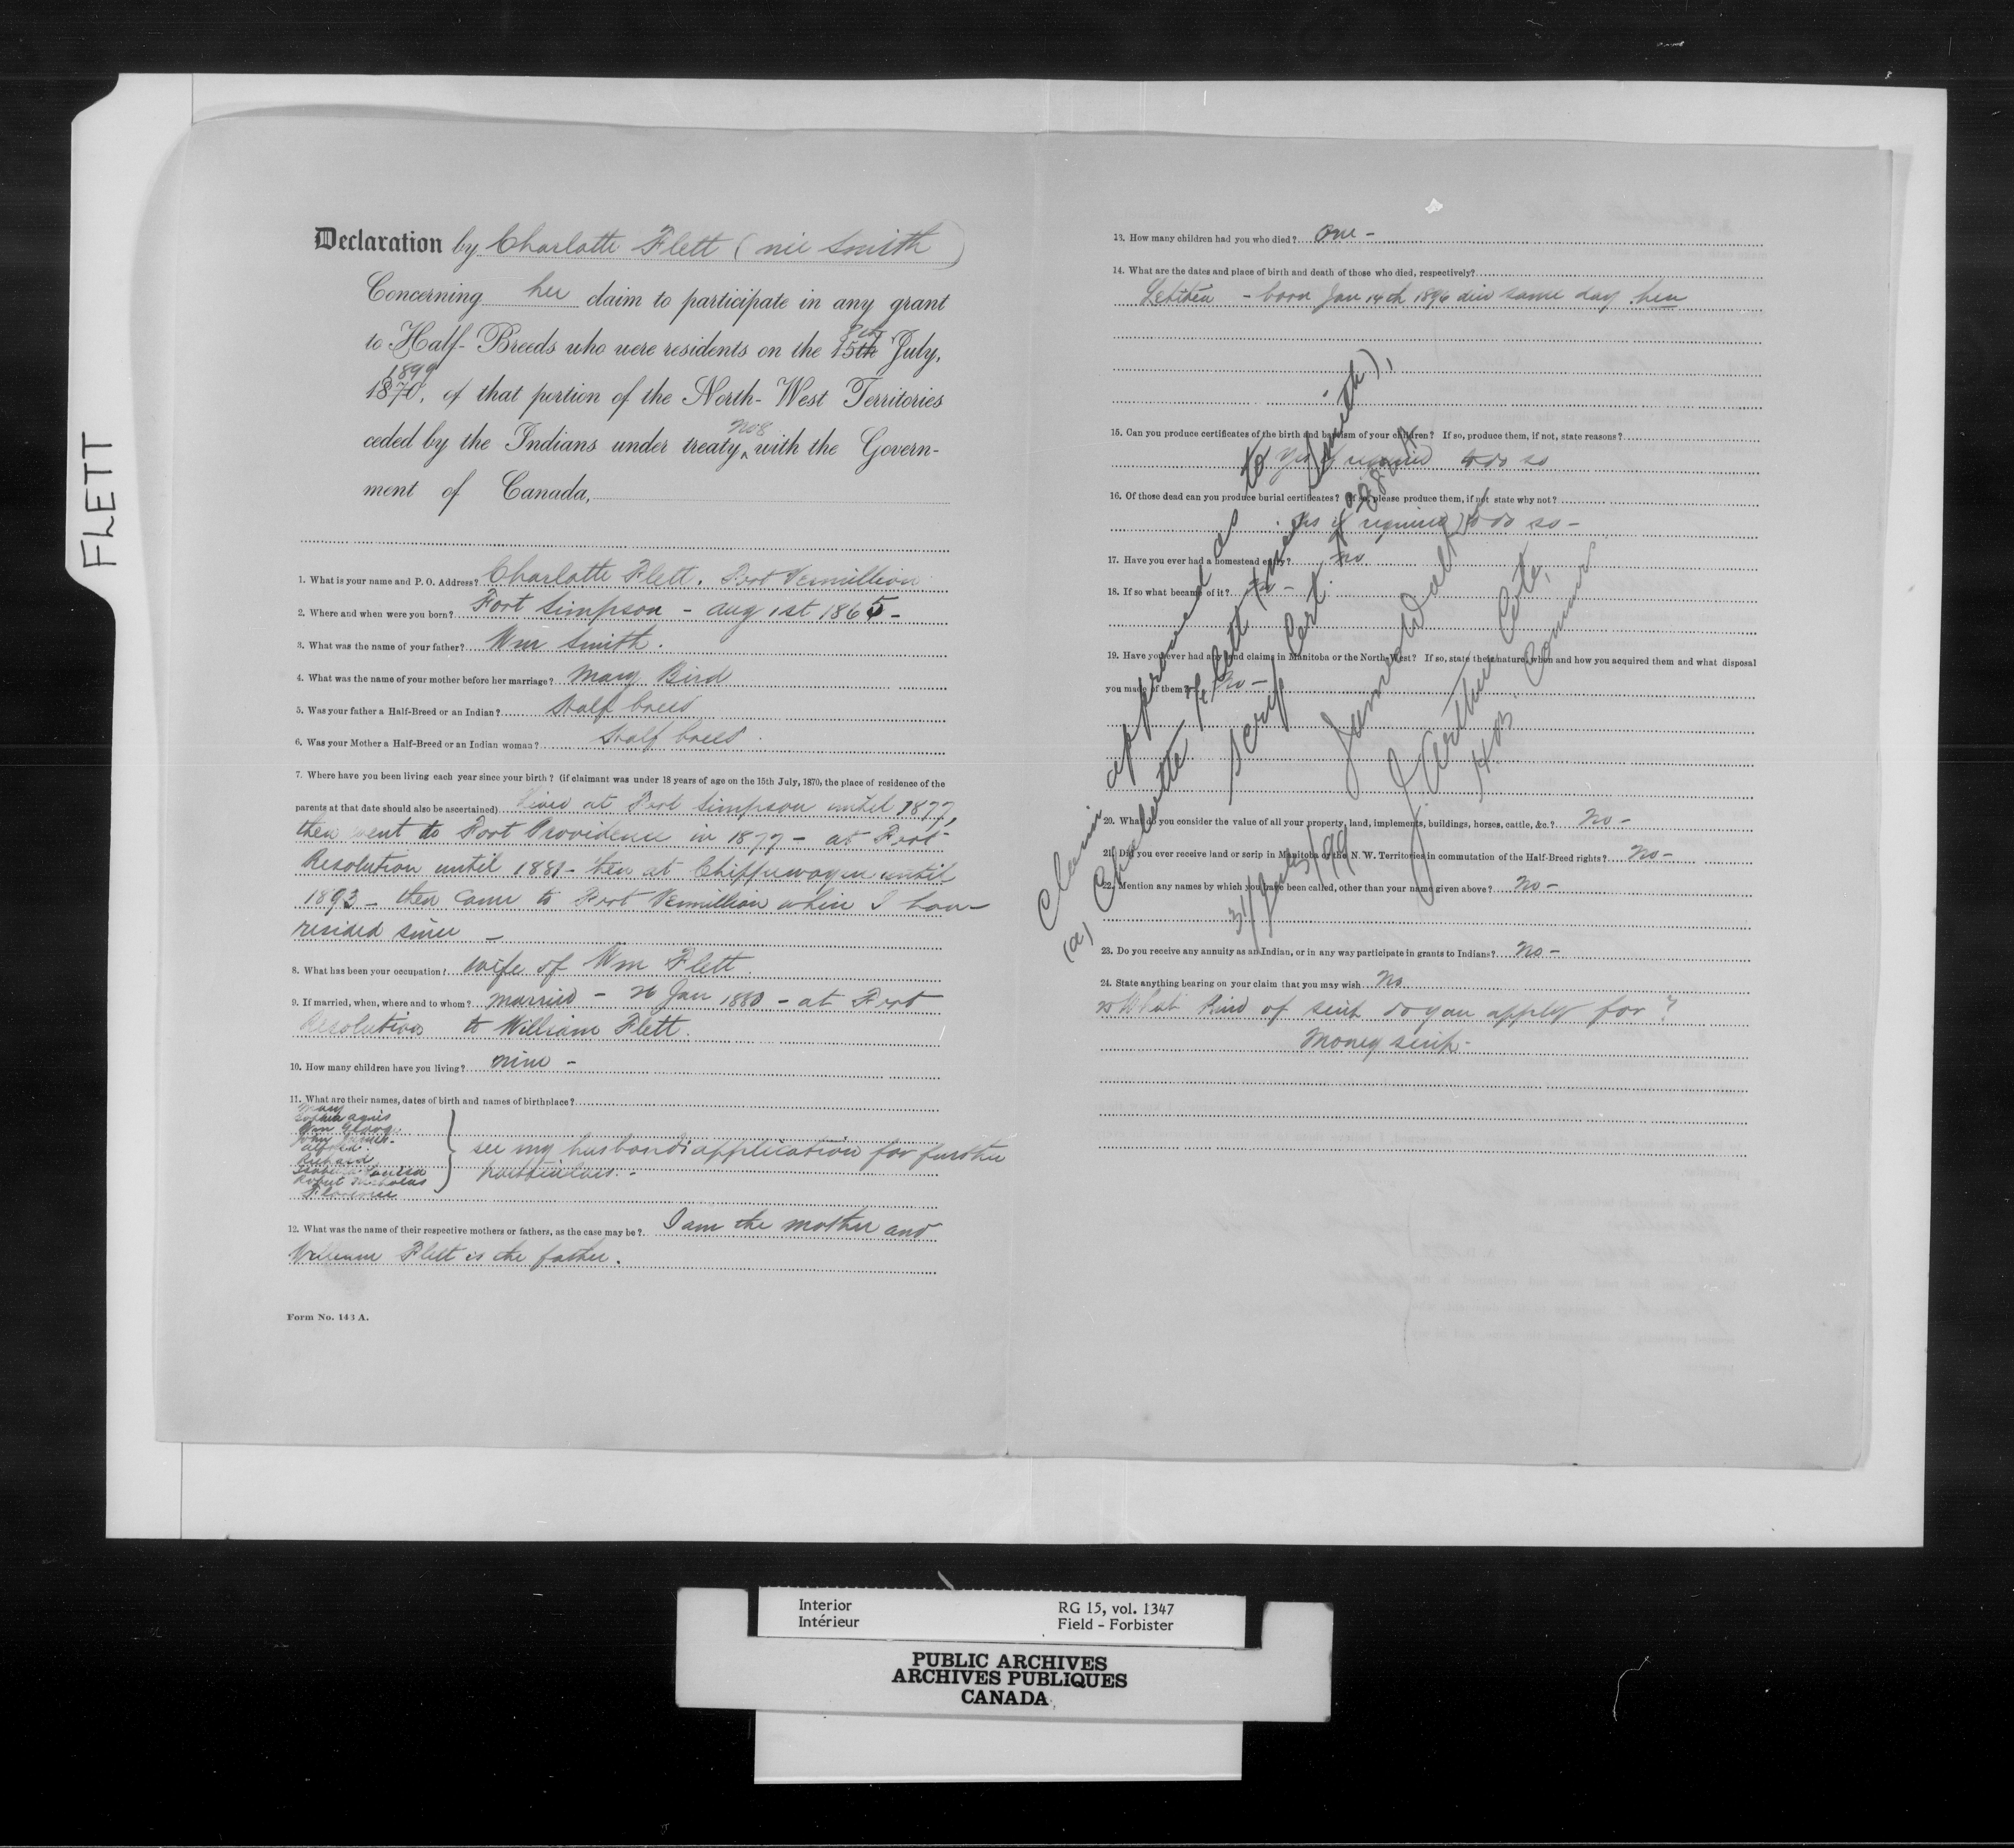 FLETT
Declaration by Charlotte Flett (nee Smith)
Concerning her claim to participate in any grant
to Half-Breeds who were residents on the 15th 8th July,
1870, 1899 of that portion of the North-West Territories
ceded by the Indians under treaty No 8 with the Govern-
ment of Canada,
1. What is your name and P. O. Address? Charlotte Flett. Fort Vermillion
2. Where and when were you born? Fort Simpson - Aug 1st 1865 -
3. What was the name of your father? Wm Smith.
4. What was the name of your mother before her marriage? Mary Bird
5. Was your father a Half-Breed or an Indian? Half breed
6. Was your Mother a Half-Breed or an Indian woman? Half breed.
7. Where have you been living each year since your birth? (if claimant was under 18 years of age on the 15th July, 1870, the place of residence of the
parents at that date should also be ascertained) Lived at Fort Simpson until 1877,
then went to Fort Providence in 1877 - at Fort
Resolution until 1881 - then at Chippewayan until
1893 - then came to Fort Vermillion where I have
resided since -
8. What has been your occupation? Wife of Wm Flett.
9. If married, when, where and to whom? Married - 26 Jan 1880 - at Fort
Resolution to William Flett.
10. How many children have you living? nine -
11. What are their names, dates of birth and names of birthplace?
Mary
Sophia Agnes
Wm George
John James
Alfred
Richard
Isabella Louisa
Robert Nicholas
Florence
see my husbands application for further
particulars. -
12. What was the name of their respective mothers or fathers, as the case may be? I am the mother and
William Flett is the father.
Form No. 143 A.
13. How many children had you who died? One -
14. What are the dates and place of birth and death of those who died, respectively?
- born Jan 14th 1896 died same day here
15. Can you produce certificates of the birth and baptism of your children? If so, produce them, if not, state reasons?
Yes if required to do so
16. Of those dead can you produce burial certificates? If so, please produce them, if not state why not?
Yes if required to do so -
17. Have you ever had a homestead entry? No
18. If so what became of it? No -
19. Have you ever had any land claims in Manitoba or the North-West? If so, state their nature, when and how you acquired them and what disposal
you made of them? No -
20. What do you consider the value of all your property, land, implements, buildings, horses, cattle, &c.? No -
21. Did you ever receive land or scrip in Manitoba or the N. W. Territories in commutation of the Half-Breed rights? No -
22. Mention any names by which you have been called, other than your name given above? No -
23. Do you receive any annuity as an Indian, or in any way participate in grants to Indians? No -
24. State anything bearing on your claim that you may wish No
25 What kind of scrip do you apply for?
Money scrip -
Claim approved as to
(a) Charlotte Flett (nee Smith),
Scrip Cert.
James Walker
J. Arthur Coté,
H. B. Commrs
31/July/99
Interior
Intérieur
RG 15, vol. 1347
Field - Forbister
PUBLIC ARCHIVES
ARCHIVES PUBLIQUES
CANADA